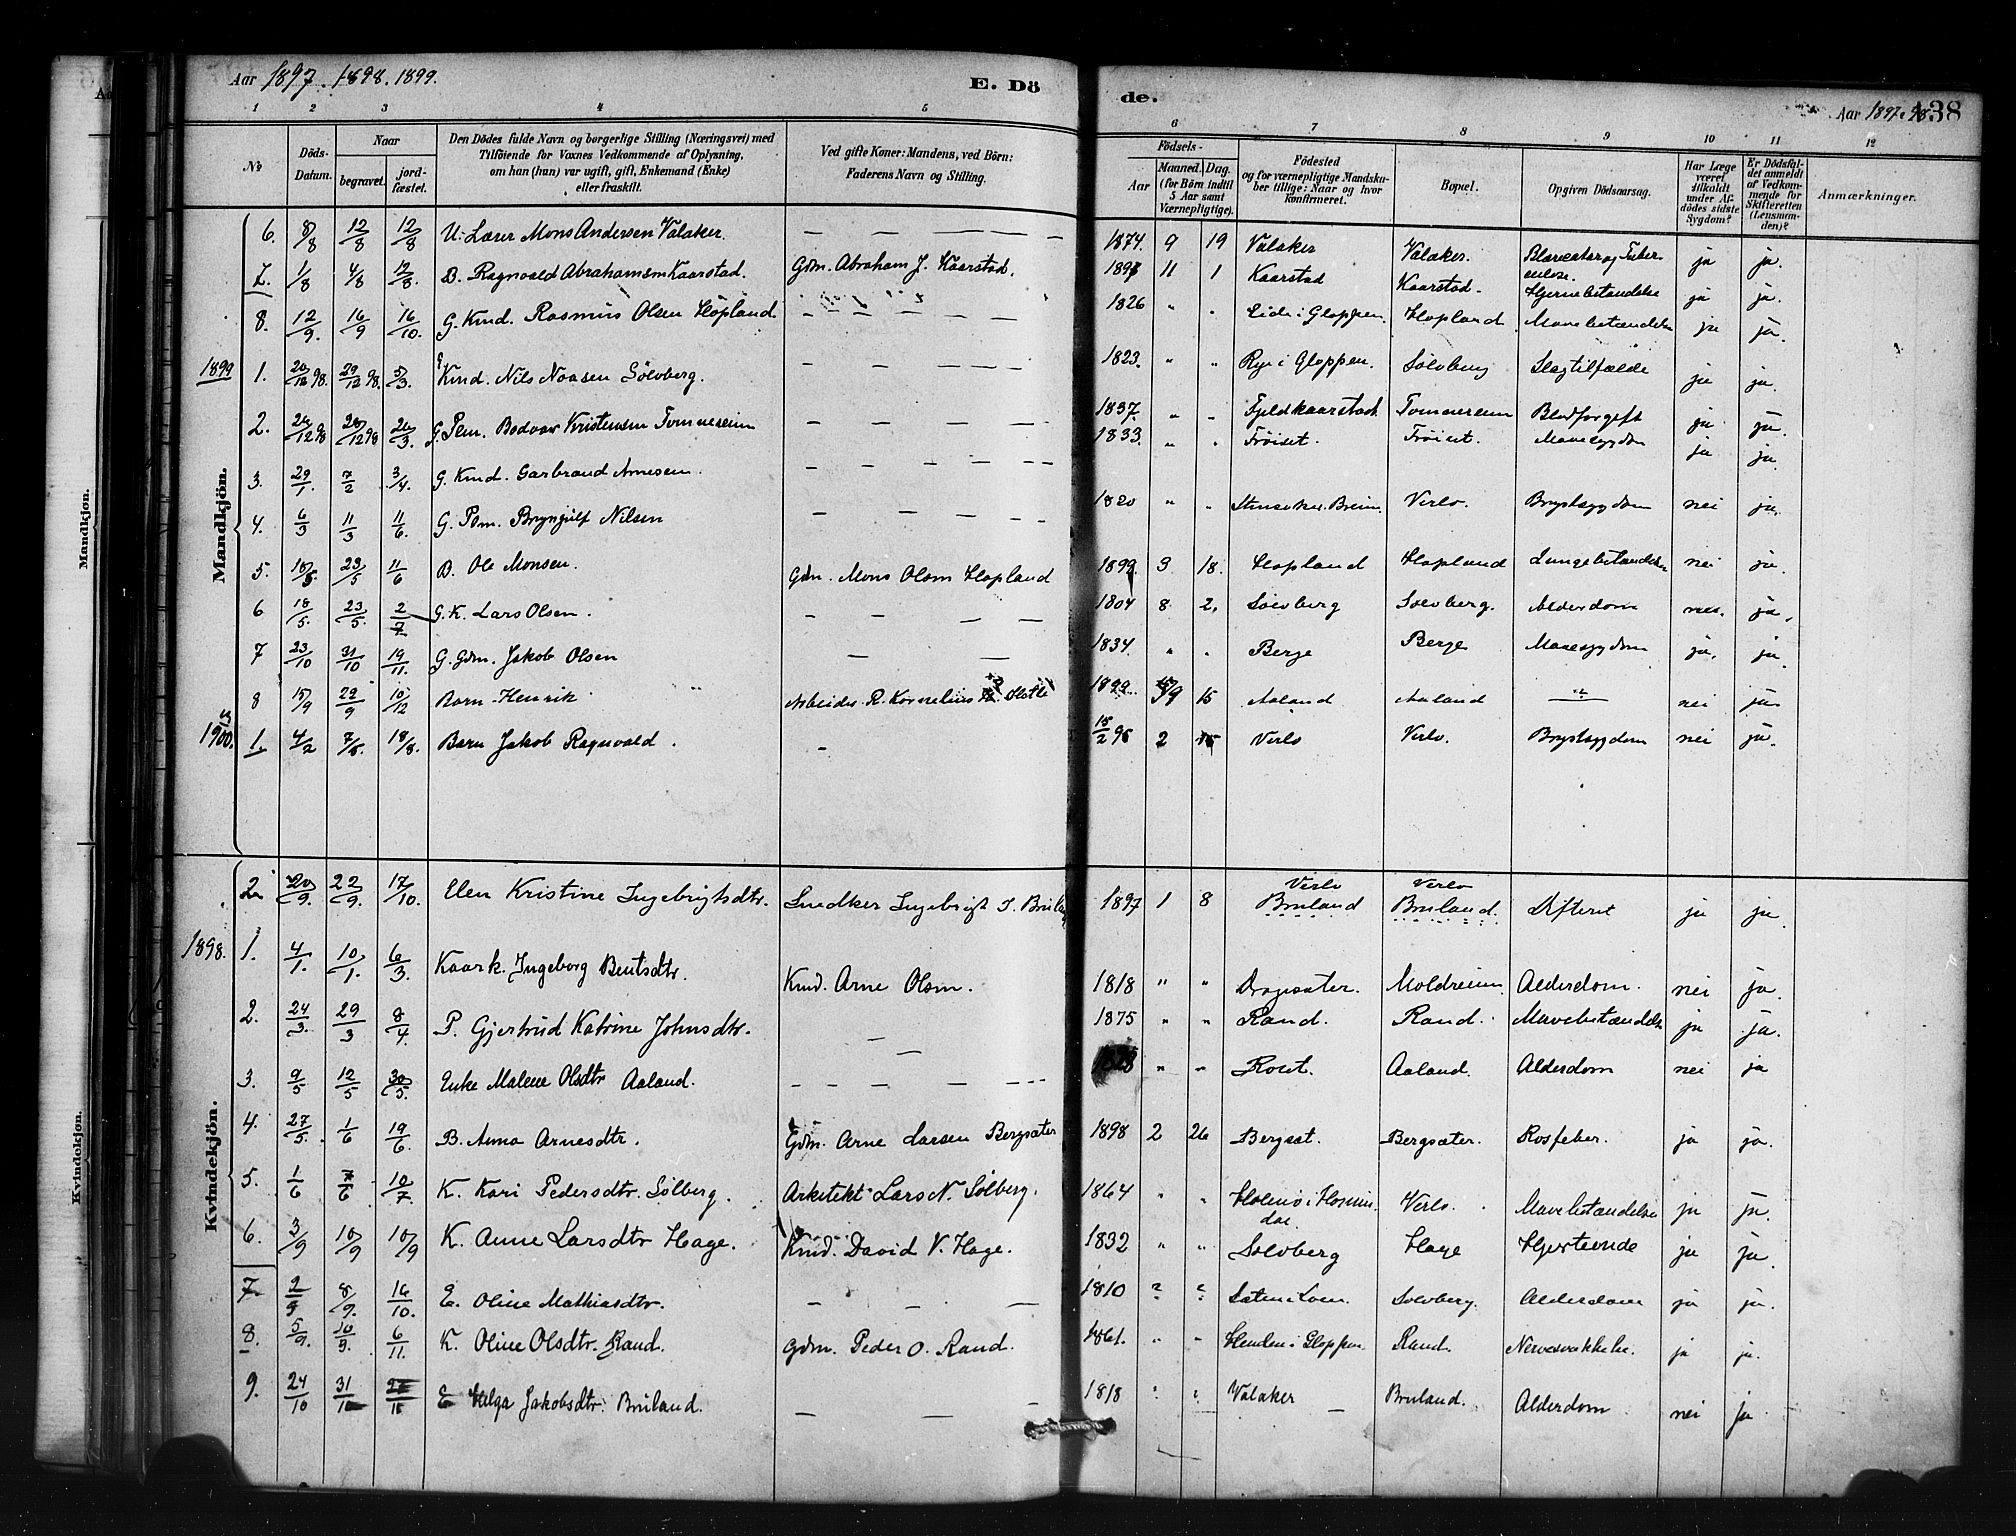 Aar 1897. 1898. 1899.
E. Dö
de.
Aar 1897. 98.
138
1 2 3 4 5 6 7 8 9 10 11 12
No
Döds-Datum.
Naar
begravet.
jord-fæstet.
Den Dödes fulde Navn og borgerlige Stilling (Næringsvei) med
Tilföiende for Voxnes Vedkommende af Oplysning,
om han (hun) var ugift, gift, Enkemand (Enke)
eller fraskilt.
Ved gifte Koner: Mandens, ved Börn:
Faderens Navn og Stilling.
Födsels-
Aar
Maaned. Dag.
(for Börn indtil
5 Aar samt
Værnepligtige).
Födested
og for værnepligtige Mandska-
ber tillige: Naar og hvor
konfirmeret.
Bopæl.
Opgiven Dödsaarsag.
Har Læge
været
tilkaldt
under Af-
dödes sidste
Sygdom?
Er Dödsfal-
det anmeldt
af Vedkom-
mende for
Skifteretten
(Lensman-
den)?
Anmærkninger.
Mandkjön.
6. 8/8 12/8 12/8 U. Lærer Mons Andersen Valaker. — — 1874. 9 19 Valaker Valaker. ja ja.
7. 1/8 4/8 12/8 B. Ragnvald Abrahamsen Kaarstad. Gdm. Abraham J. Kaarstad. 1897 11 1 Kaarstad Kaarstad. Hjernebetændelse ja ja.
8. 12/9. 16/9 16/10. G. Kmd. Rasmus Olsen Hopland — — 1826 " " Eide i Gloppen. Hopland Mavebetændelse ja ja.
1899 1. 20/12 98. 29/12 98. 5/3. G. Kmd. Nils Noasen Sölvberg. — — 1823. " " Rye i Gloppen. Sölvberg Slagtilfælde ja ja.
2. 20/12 98 28/12 98 20/3. G. Pem. Bødvar Kristensen Tommereim — — 1837. " " Fjeldkaarstad Tommereim Blodforgift ja ja.
3. 29/1. 7/2 3/4. G. Kmd. Garbrand Arnesen. — — 1833. " " Fröiset. Fröiset. Mavesygdom ja ja.
4. 6/3 11/3 11/6. G. Pem. Bryngulf Nilsen — — 1820 " " Verlo. Brystsygdom nei ja.
5. 18/5. 23/5 11/6 B. Ole Monsen. Gdm. Mons Olsen Hopland 1899. 3 18. Hopland Hopland Lungebetændelse nei ja.
6 18/5. 23/5. 2/7 G. K. Lars Olsen. — — 1804 8 2. Sölvberg Sölvberg. Alderdom nei. ja.
7 23/10 31/10 19/11. G. Gdm. Jakob Olsen — — 1834. " " Berge Berge Mavesygdom ja. ja.
8 15/9 22/9 10/12 Barn Henrik Arbeider R. Kornelius 1899. 9 15 Aaland Aaland — nei ja
1900. 1. 4/2 7/5. 18/8. Barn Jakob Ragnvald. — 15/2 96 2 15 Verlo Verlo. Brystsygdom nei ja.
Kvindekjön.
2. 20/9. 22/9. 17/10. Elen Kristine Ingebrigtsdtr. Snedker Ingebrigt J. Bruland 1897 1 8 Verlo Bruland Verlo Bruland. Difterit ja ja.
1898. 1. 4/1. 10/1. 6/3 Kaark. Ingeborg Bentsdtr. Kmd. Arne Olsen. 1818 " " Dragsæter. Moldreim. Alderdom. nei ja.
2. 24/3. 29/3 8/4. P. Gjertrud Katrine Johnsdtr. — — 1875 " " Rand. Rand. Mavebetændelse ja ja.
3. 9/5 12/5 30/5. Enke Malene Olsdtr Aaland. — — " " Roset. Aaland. Alderdom nei ja
4. 27/5. 1/6 19/6. B. Anna Arnesdtr. Gdm. Arne Larsen Bergsæter 1898 2 26 Bergsæt. Bergsæter. Rosfeber. ja ja.
5. 1/6 7/6 10/7 K. Kari Pedersdtr. Sölberg. Arkitekt Lars N. Sölberg. 1864 " " Verlo. Mavebetændelse ja ja.
6. 3/9 10/9 10/9 K. Anne Larsdtr Hage. Kmd. David V. Hage. 1832 " " Solvberg Hage Hjerteonde ja ja.
7. 2/9 8/9. 16/10. E. Oline Mathiasdtr. — — 1810 " " Solvberg. Alderdom ja ja.
8. 5/9. 10/9. 6/11. K. Oline Olsdtr. Rand. Gdm. Peder O. Rand. 1861. " " Henden i Gloppen Rand. Nervesvækkelse. ja ja.
9. 24/10 31/10 E Helga Jakobsdtr. Bruland. — — 1818 " " Valaker Bruland. Alderdom nei ja
Mandkjøn.
Kvindekjøn.